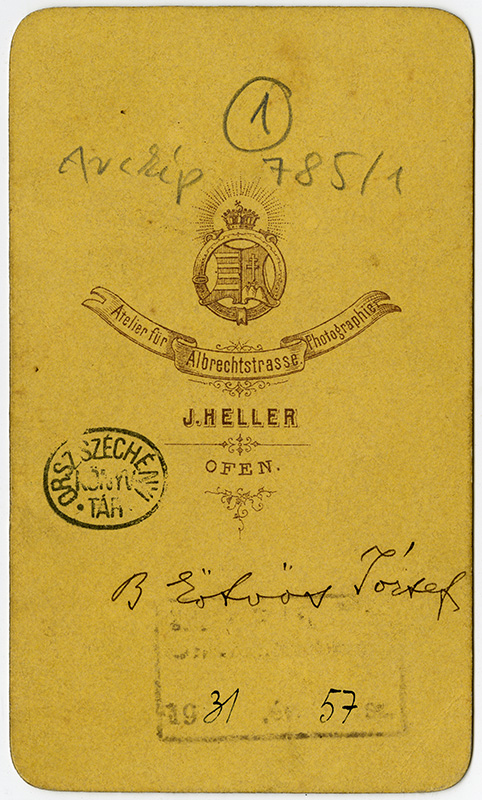 1
Arckép 785/1
Atelier für Albrechtstrasse Photographie
J. HELLER
OFEN.
ORSZ. SZÉCHÉNYI
KÖNYV
TÁR
B Eötvös József
1931 év 57 sz.